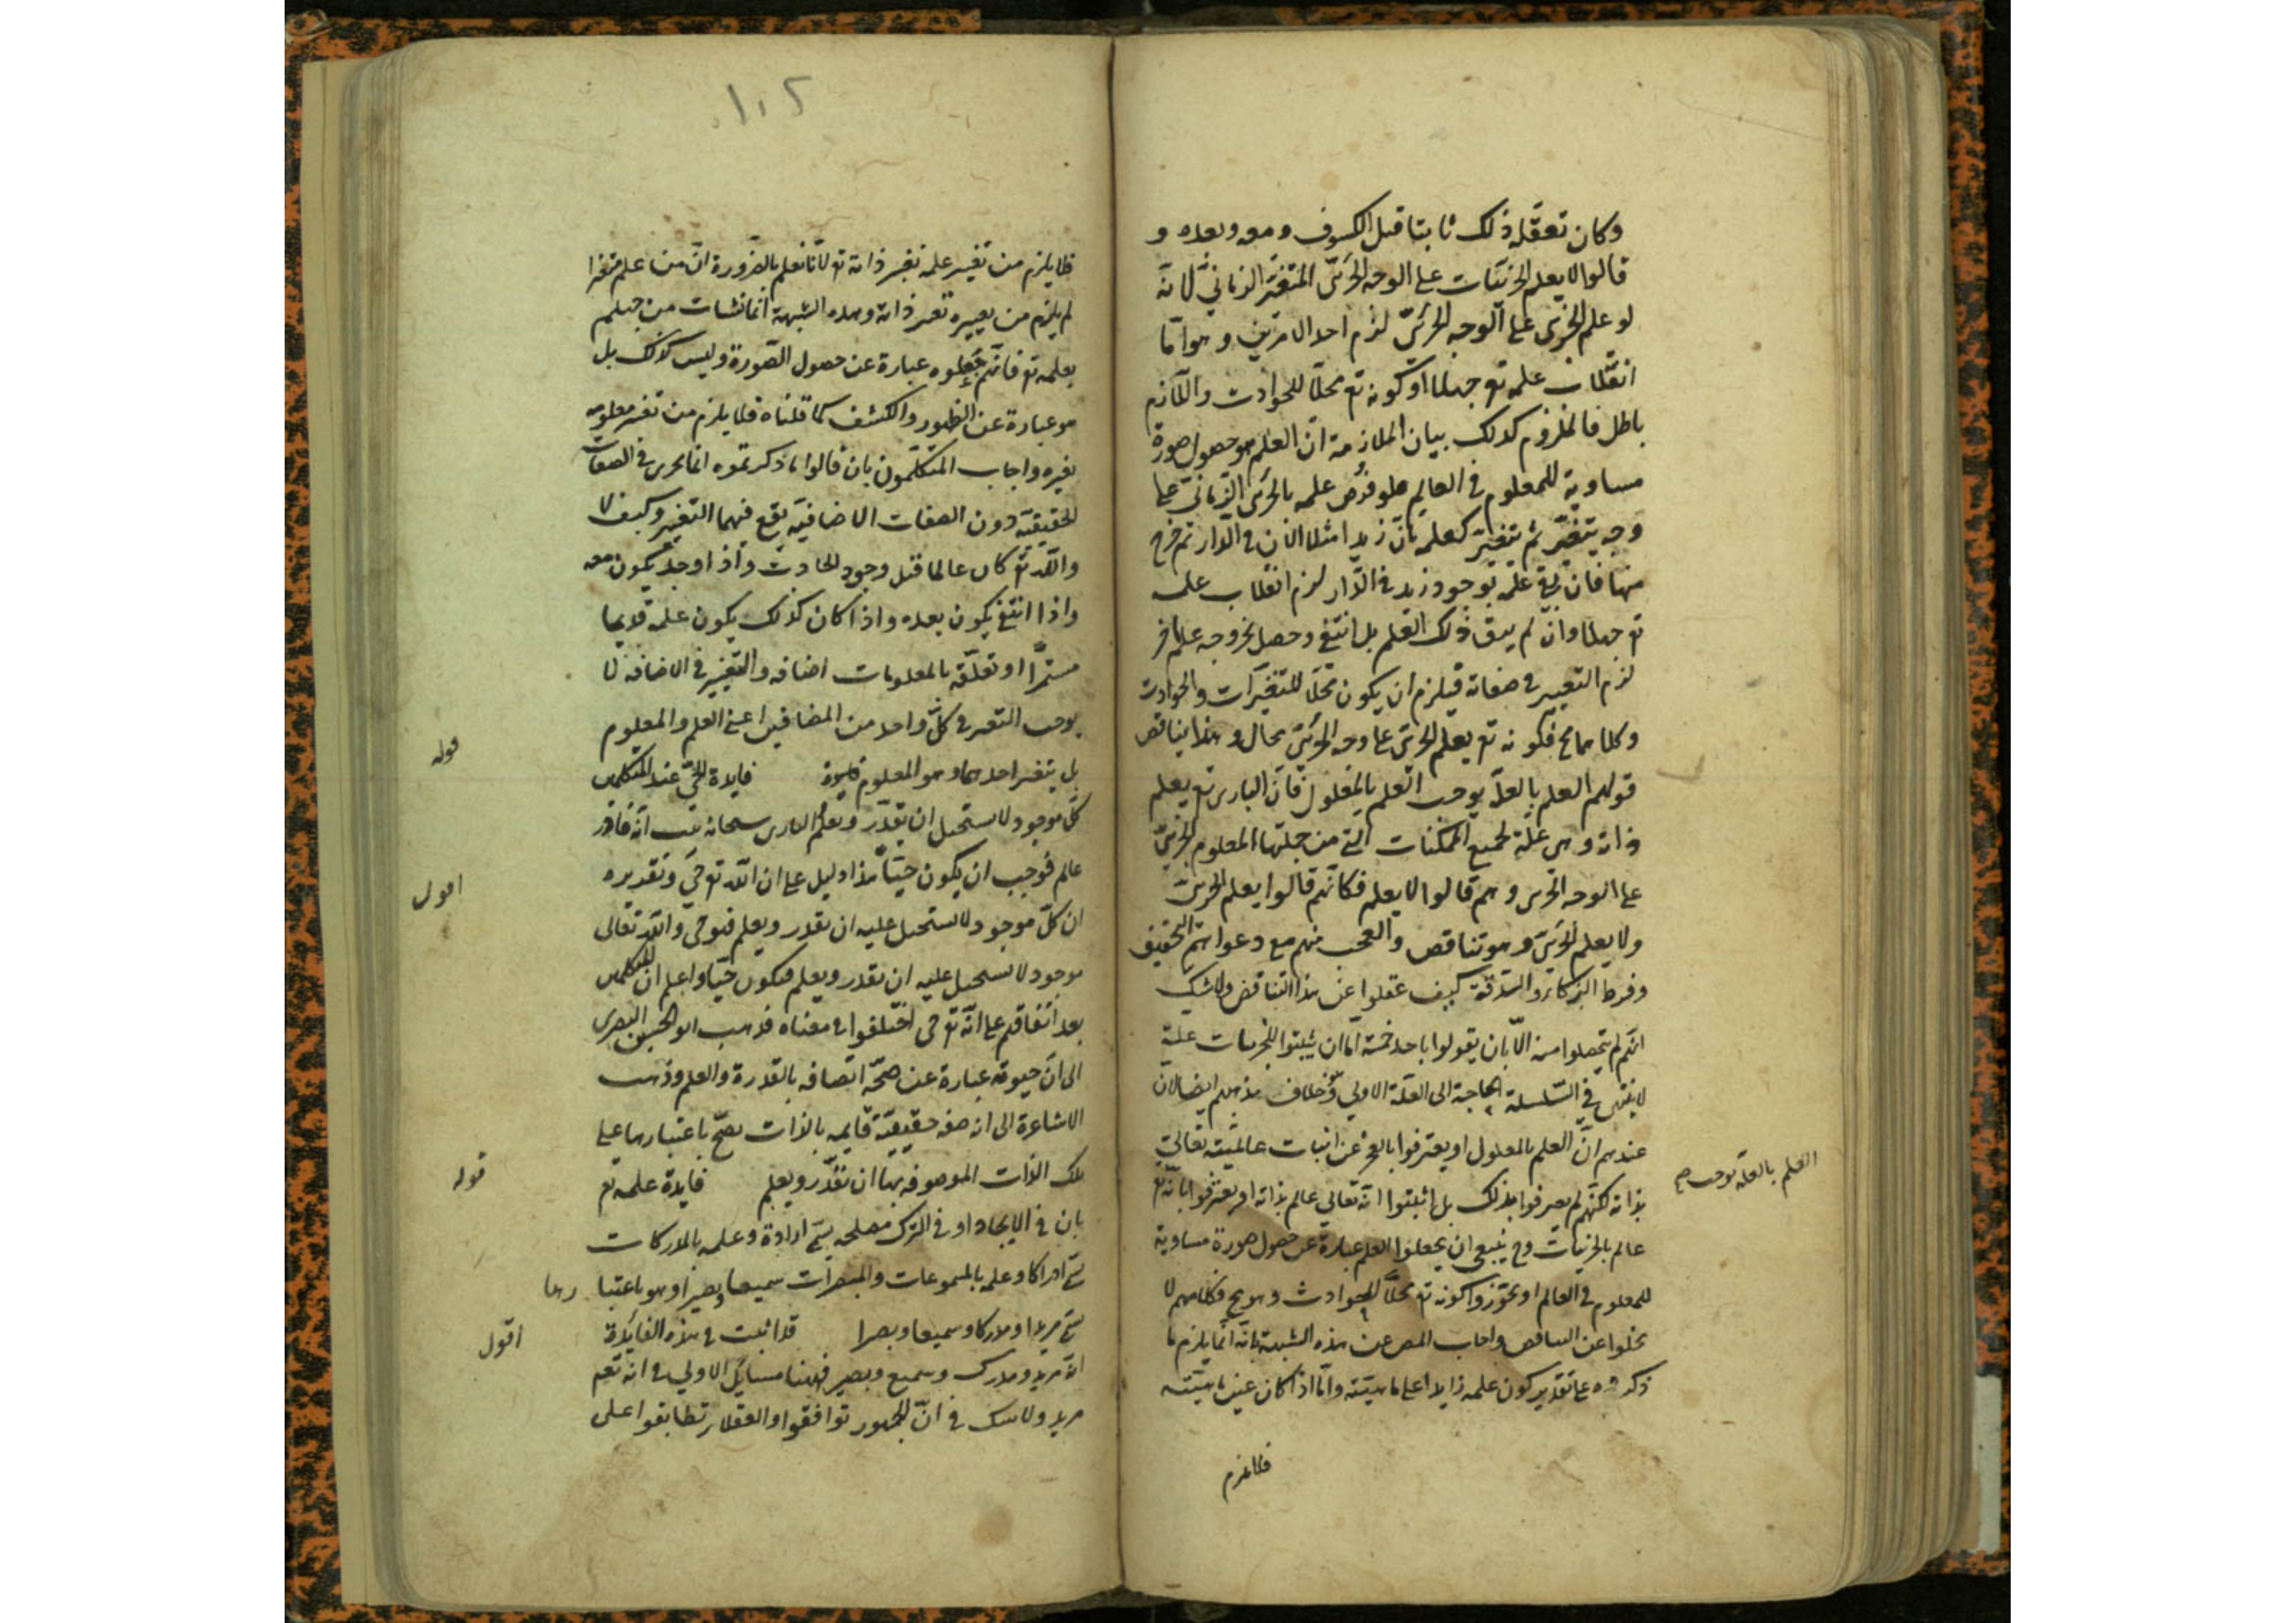 وكان تعقله ذلك ثابتا قبل الكسوف ومعه وبعده و
قالوا لا يعلم الجزئيات على الوجه الجزئى المتغير الزمانى لانه
لو علم الجزئى على الوجه الجزئى لزم احد الامرين وهو اما
انقلاب علمه تع جهلا او كونه تع محلا للحوادث واللازم
باطل فالملزوم كذلك بيان الملازمة ان العلم هو حصول صورة
مساوية للمعلوم فى العالم فلو فرض علمه بالجزئى الزمانى على
وجه يتغير ثم يتغير كعلمه بان زيد امثلا الان فى الدار ثم خرج
منها فان بقى علمه بوجود زيد فى الدار لزم انقلاب علمه
تع جهلا وان لم يبق ذلك العلم بل انتفى وحصل بخروجه علم اخر
لزم التغيير فى صفاته فيلزم ان يكون محلا للتغيرات والحوادث
وكلاهما مح فكونه تع يعلم الجزئى على وجه الجزئى محال وهذا يناقض
قولهم العلم بالعلة يوجب العلم بالمعلول فان البارى تع يعلم
ذاته وهى علة لجميع الممكنات التى من جملتها المعلوم الجزئى
على الوجه الجزئى وهم قالوا لا يعلم فكانهم قالوا يعلم الجزئى
ولا يعلم الجزئى وهو تناقض والعجب منهم مع دعواهم التحقيق
وفرط الذكاء والتدقق كيف غفلوا عن هذا التناقض ولا شك
انهم لم يتخلصوا منه الا بان يقولوا باحد خمسة اما ان يثبتوا للجزئيات علة
لا ينتهى فى السلسلة الحاجة الى العلة الاولى وهو خلاف مذهبهم ايضا لان
عندهم ان العلم بالمعلول او يعترفوا بالعجز عن اثبات عالميته تعالى
العلم بالعلة يوجب صح
بذاته لكنهم لم يعترفوا بذلك بل اثبتوا انه تعالى عالم بذاته او يعترفوا بانه تع
عالم بالجزئيات وح ينبغى ان يجعلوا العلم عبارة عن حصول صورة مساوية
للمعلوم فى العالم او يجوزوا كونه تع محلا للحوادث وهو مح فكلامهم لا
يخلوا عن التناقض واجاب المص عن هذه الشبهة بانه انما يلزم ما
ذكروه على تقدير كون علمه زايدا على ماهيته واما اذا كان عين ماهيته
فلا يلزم
١٠٢
فلا يلزم من تغيير علمه تغير ذاته تع لانا نعلم بالضرورة ان من علم متغيرا
لم يلزم من تغييره تغير ذاته وهذه الشبهة انما نشات من جهلهم
بعلمه تع فانهم جعلوه عبارة عن حصول الصورة وليس كذلك بل
هو عبارة عن الظهور والكشف كما قلناه فلا يلزم من تغير معلومه
تغيره واجاب المتكلمون بان قالوا ما ذكرتموه انما يجرى فى الصفات
الحقيقية دون الصفات الاضافية يقع فيهما التغيير وكيف لا
والله تع كان عالما قبل وجود الحادث واذا وجد يكون معه
واذا انتفى يكون بعده واذا كان كذلك يكون علمه قديما
مستمرا او تعلقه بالمعلومات اضافة والتغيير فى الاضافة لا
يوجب التغير فى كل واحد من المضافين اعنى العلم والمعلوم
بل يتغير احدهما وهو المعلوم فايدة الحى عند المتكلمين
قوله
كل موجود لا يستحيل ان يقدر ويعلم البارى سبحانه ثبت انه قادر
عالم فوجب ان يكون حيا هذا دليل على ان الله تع حى وتقديره
اقول
ان كل موجود لا يستحيل عليه ان يقدر ويعلم فهو حى والله تعالى
موجود لا يستحيل عليه ان يقدر ويعلم فيكون حيا واعلم ان المتكلمين
بعد اتفاقهم على انه تع حى اختلفوا فى معناه فذهب ابو الحسين البصرى
الى ان حيوته عبارة عن صحة اتصافه بالقدرة والعلم وذهب
الاشاعرة الى انه صفة حقيقية قايمة بالذات يصح باعتبارها على
تلك الذات الموصوفة بها ان تقدر ويعلم فايدة علمه تع
قوله
بان فى الايجاد او فى الترك مصلحة يسمى ارادة وعلمه بالمدركات
يسمى ادراكا وعلمه بالمسموعات والمبصرات سميعا وبصيرا وهو باعتبا رها
يسمى مريدا ومدركا وسميعا وبصيرا قد اثبت فى هذه الفايدة
اقول
انه مريد ومدرك وسميع وبصير فههنا مسايل الاولى فى انه تعم
مريد ولا شك فى ان الجمهور توافقوا والعقلاء تطابقوا على